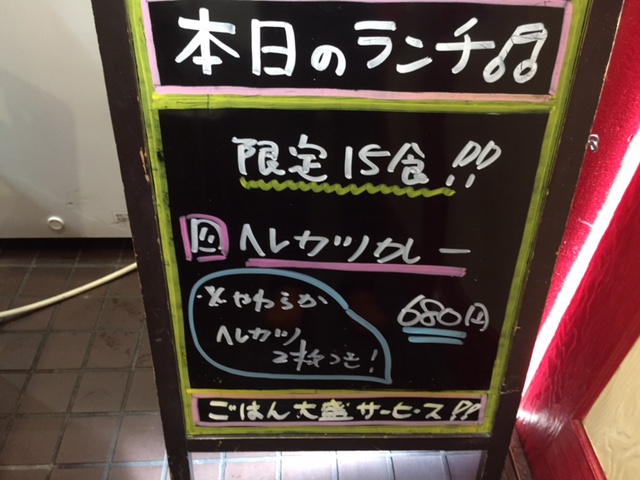 本日のランチ♫
限定15食!!
ヘレカツカレー
※やわらか
ヘレカツ
2枚つき!
680円
ごはん大盛サービス!!